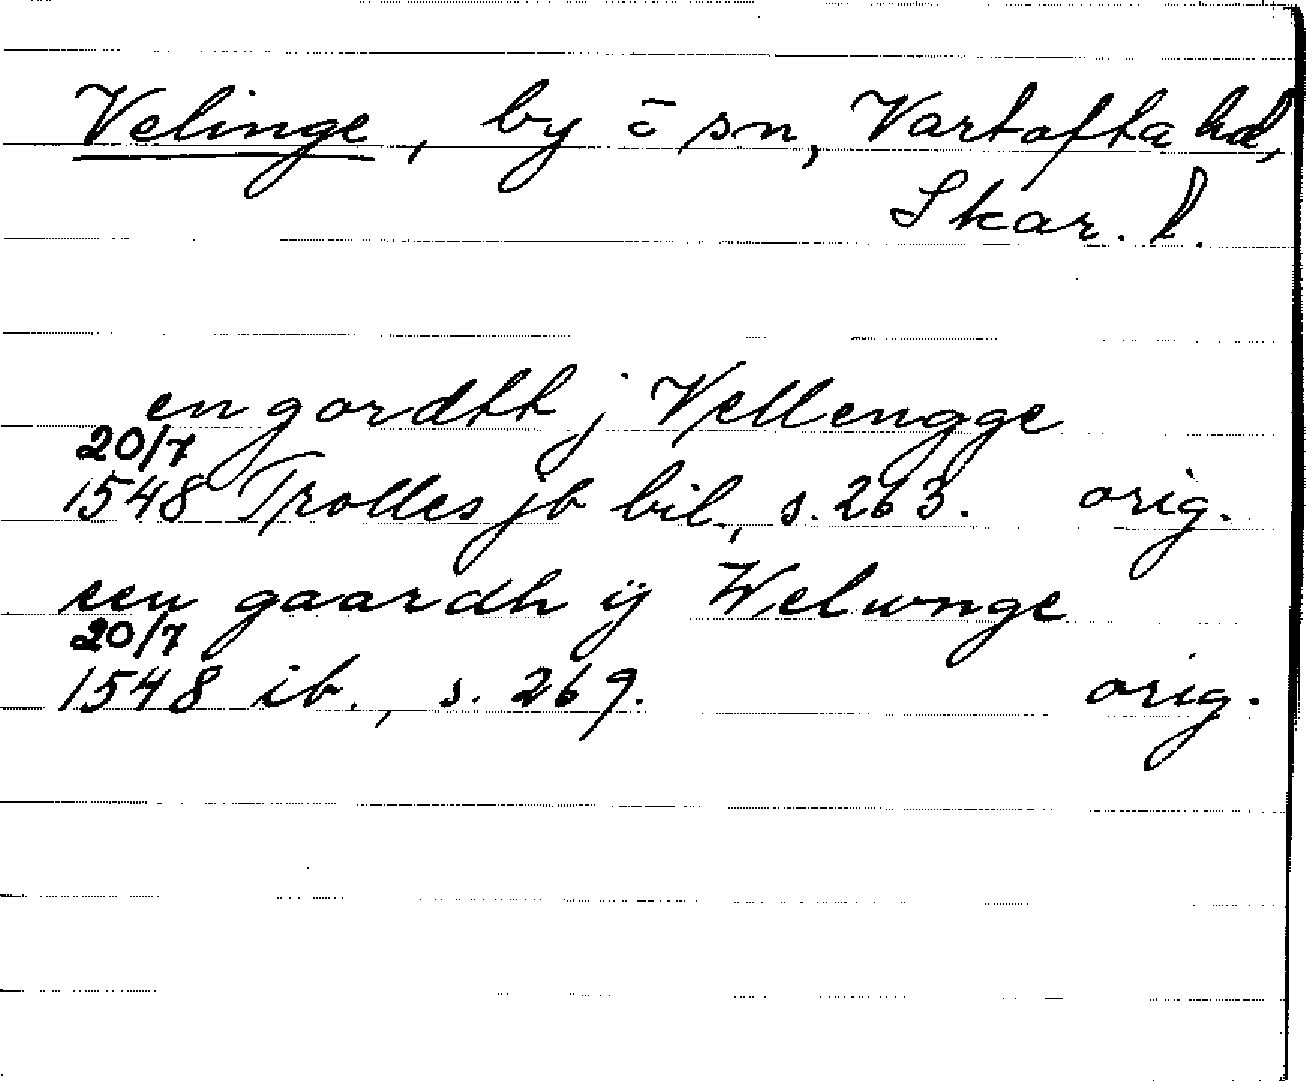 Velinge, by o̅ sn, Vartofta hd,
Skar. l.
en gordtt j Vellengge
20/7
1548 Trolles jb bil., s. 263. orig.
een gaardh ij Welwnge
20/7
1548 ib., s. 269. orig.